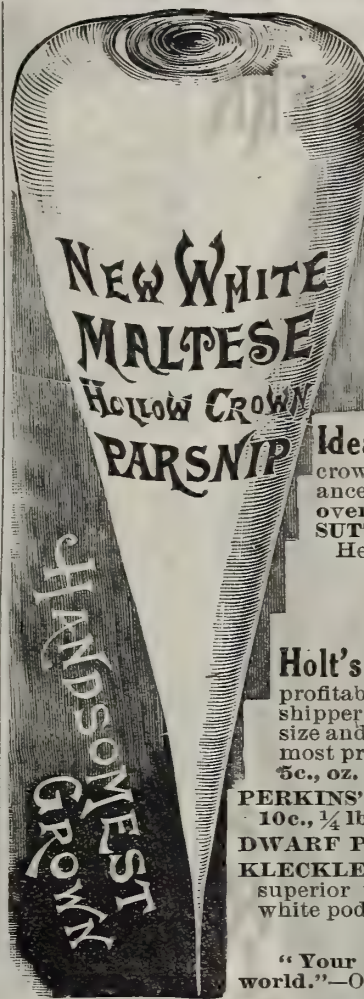 NEW WHITE
MALTESE
HOLLOW CROWN
PARSNIP
HANDSOMEST
GROWN
Ide
crow
ance
over
SUT
He
Holt's
profitab
shipper
size and
most pr
5c., oz.
PERKINS'
10c., ¼ lb
DWARF P
KLECKLE
superior
white pod
“ Your
world.”—O